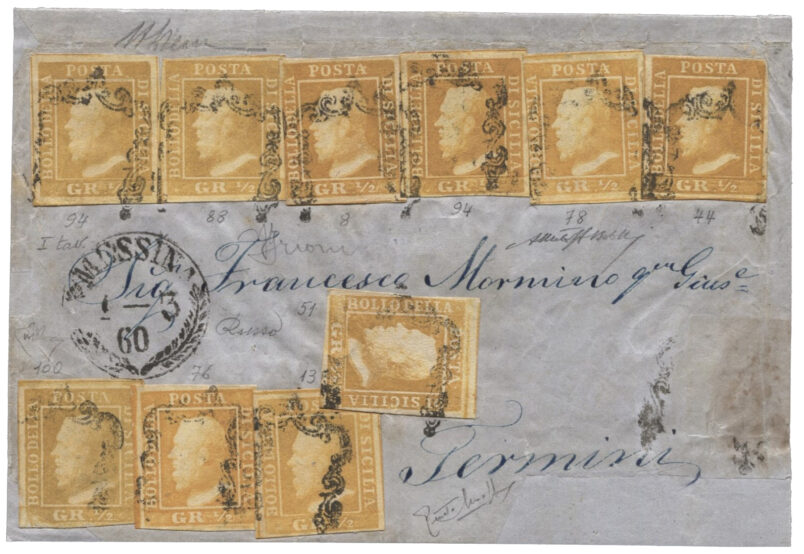 POSTA POSTA POSTA POSTA POSTA POSTA
BOLLO DELLA DI SICILIA BOLLO DELLA DI SICILIA BOLLO DELLA DI SICILIA BOLLO DELLA DI SICILIA BOLLO DELLA DI SICILIA BOLLO DELLA DI SICILIA
GR. ½ GR. ½ GR. ½ GR. ½ GR. ½ GR. ½
94 88 8 94 78 44
I tav.
MESSINA
1 — 3
60
Sig. Francesco Mormino qm Gius.e
51
Russo
BOLLO DELLA
POSTA
GR. ½
DI SICILIA
100 76 13
BOLLO DELLA DI SICILIA BOLLO DELLA DI SICILIA BOLLO DELLA DI SICILIA
GR. ½ GR. ½ GR. ½
Termini